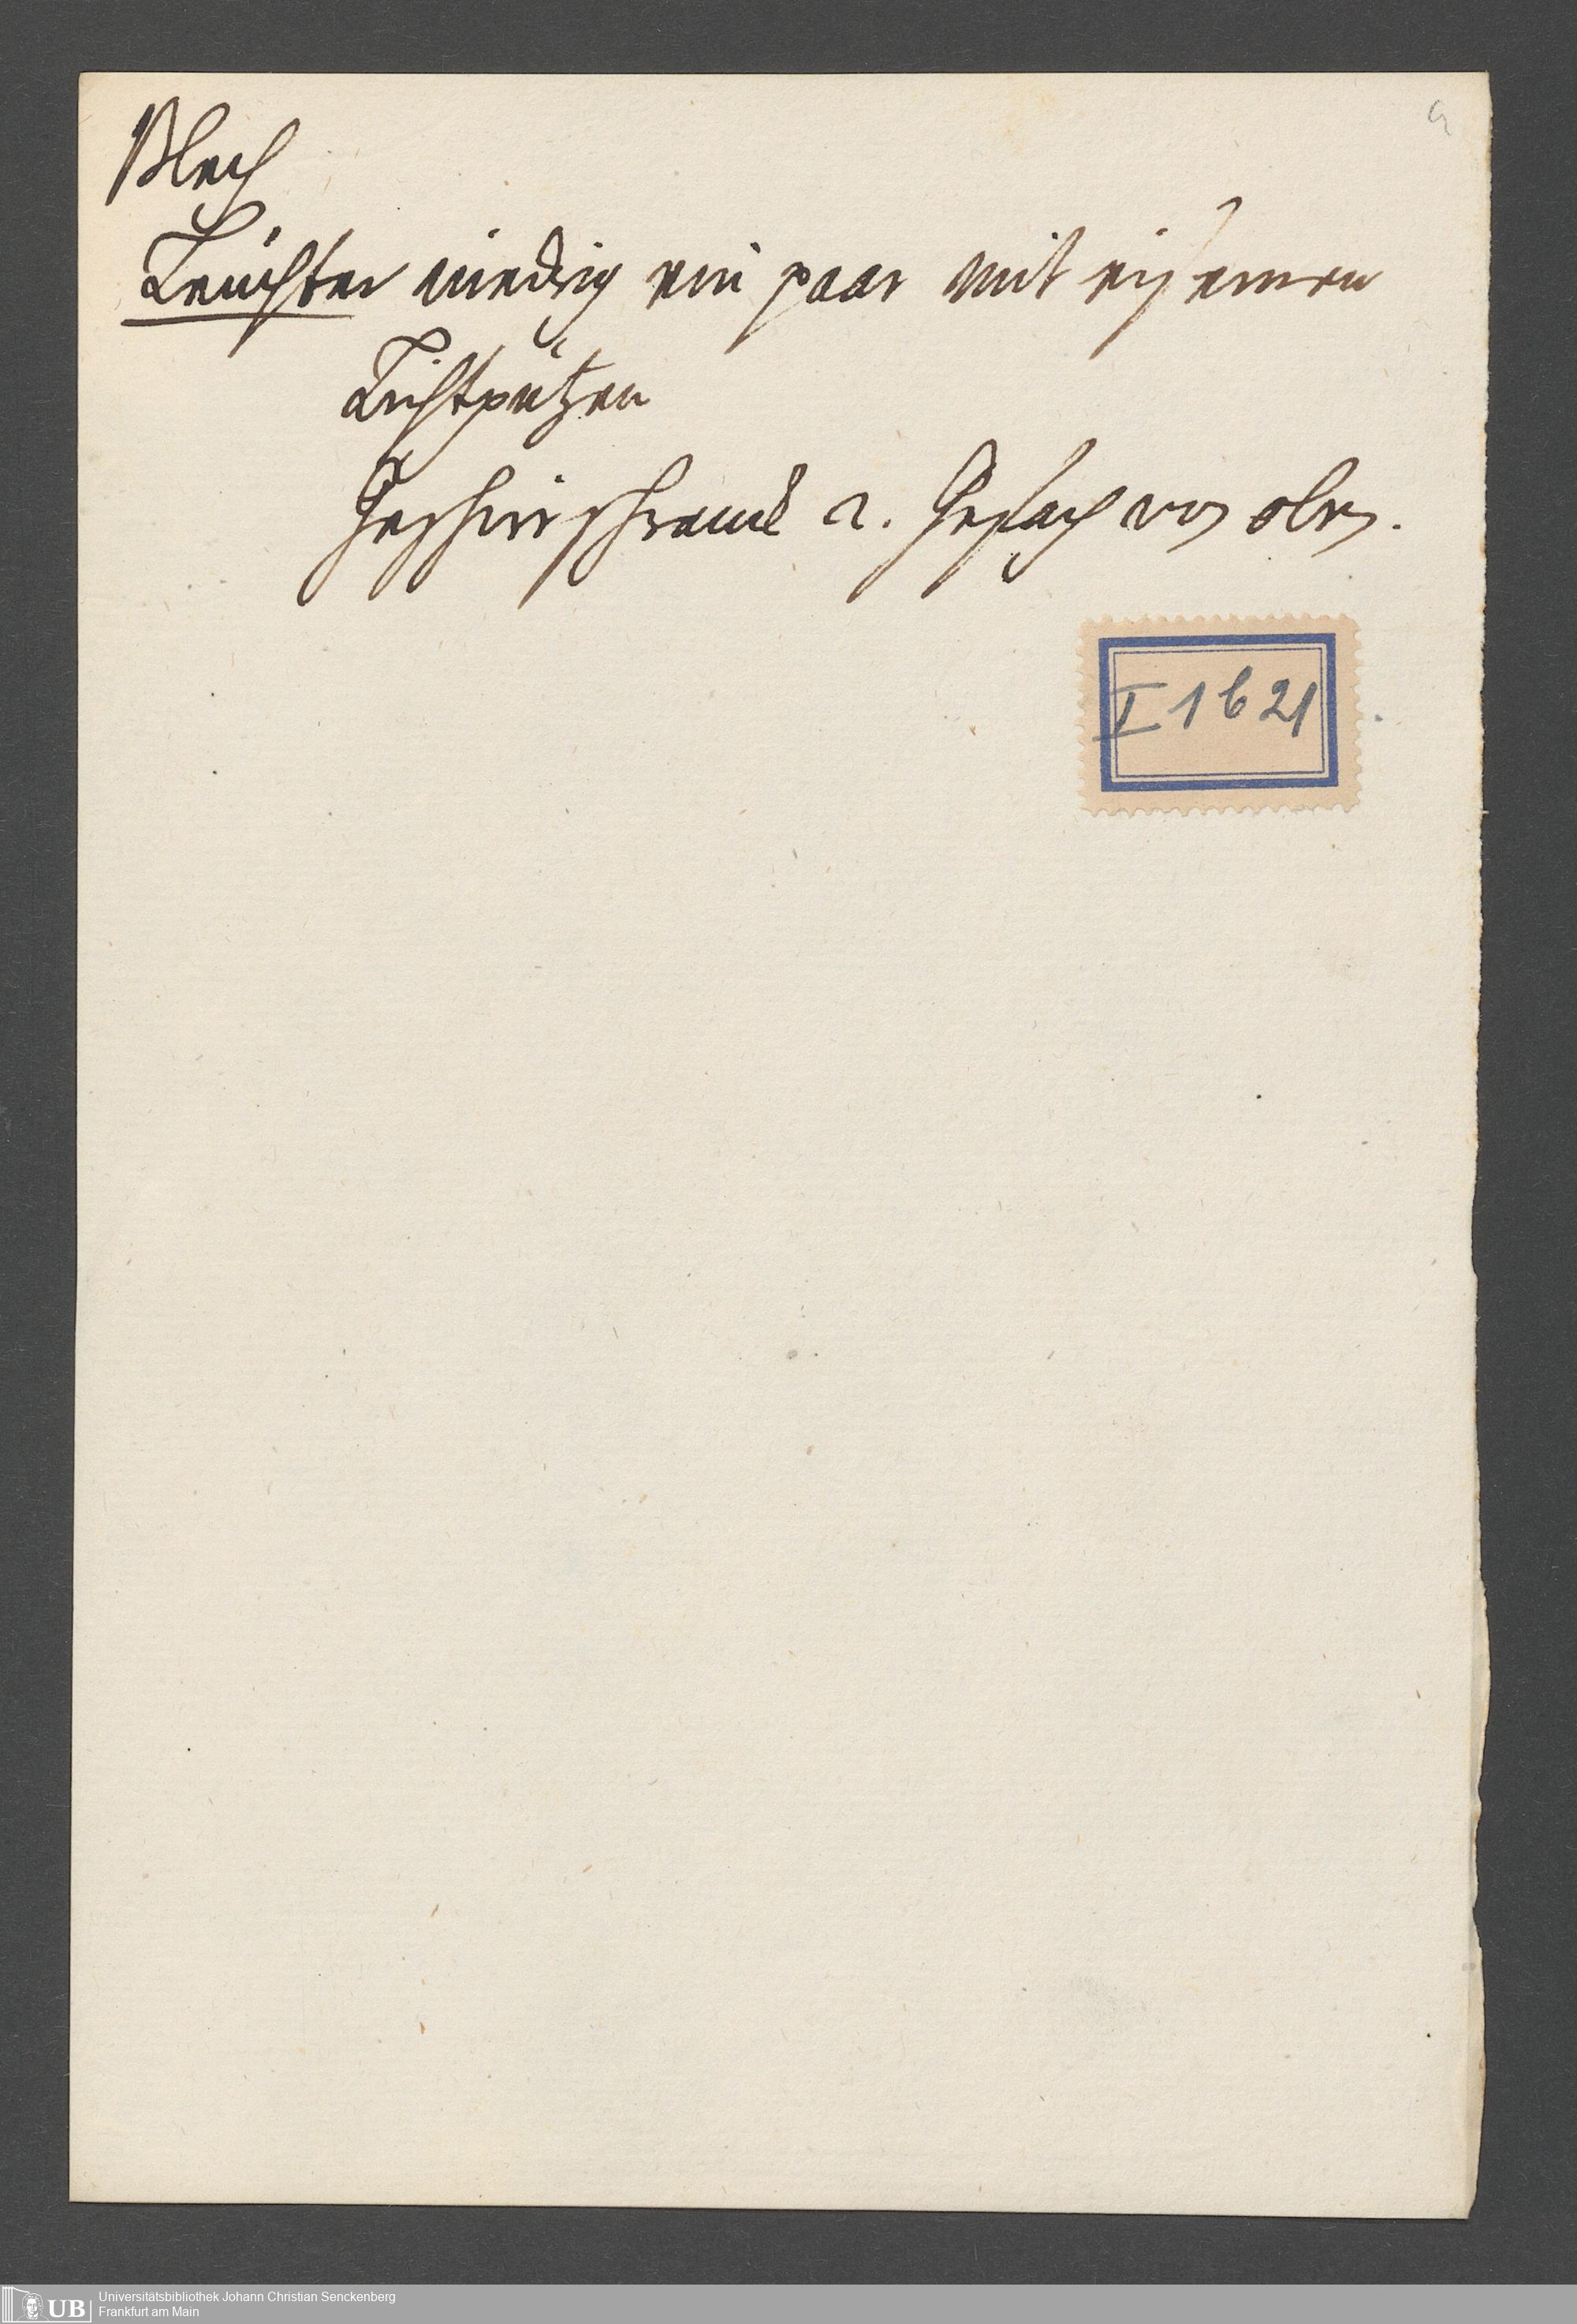 a
Blech
Leuchter niedrig ein paar mit eisernen
Lichtputzen
Geschirrschranck 2. Gefach von oben.
I 1 b 21
UB Universitätsbibliothek Johann Christian Senckenberg
Frankfurt am Main